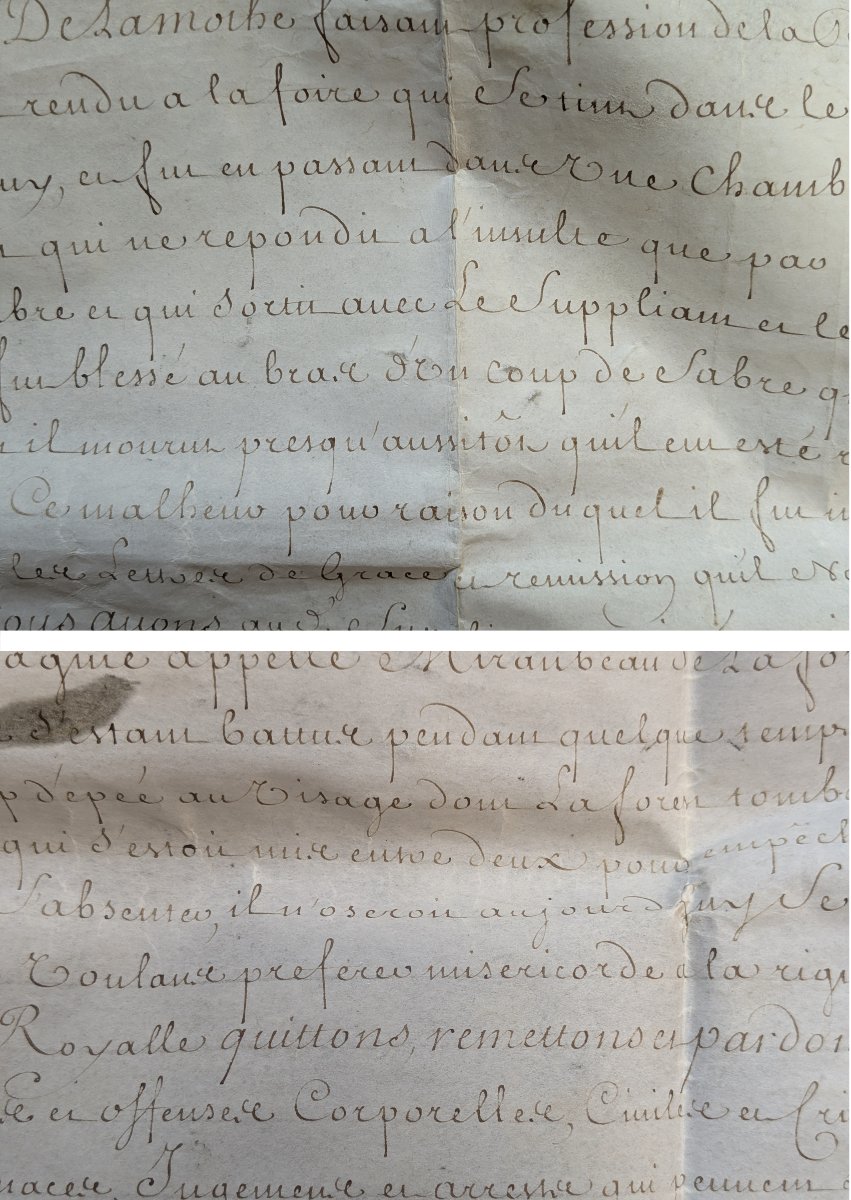 DeLamothe faisant profession de la R
rendu a la foire qui se tient dans le
luy, et fut en passant dans Une Chamb
qui ne repondit a l'insulte que par
bre et qui Sortit avec Le Suppliant et le
fut blessé au bras d'Un coup de Sabre q
il mourut presqu'aussitôt qu'il eut esté r
Ce malheur pour raison duquel il fut i
les Lettres de Grace et remission qu'il
ous avons aud. Suppli
agnie appellé Miraubeau de La fo
S'estant battus pendant quelque temps
p d'epée au Visage dont La forest tomba
qui S'estoit mis entre deux pour empêch
S'absenter, il n'oseroit aujourd'huy Se
Voulans preferer misericorde a la rigu
Royalle quittons, remettons et pardon
et offenses Corporelles, Civile et Cri
naces, Jugemens et arrests qui peuvent